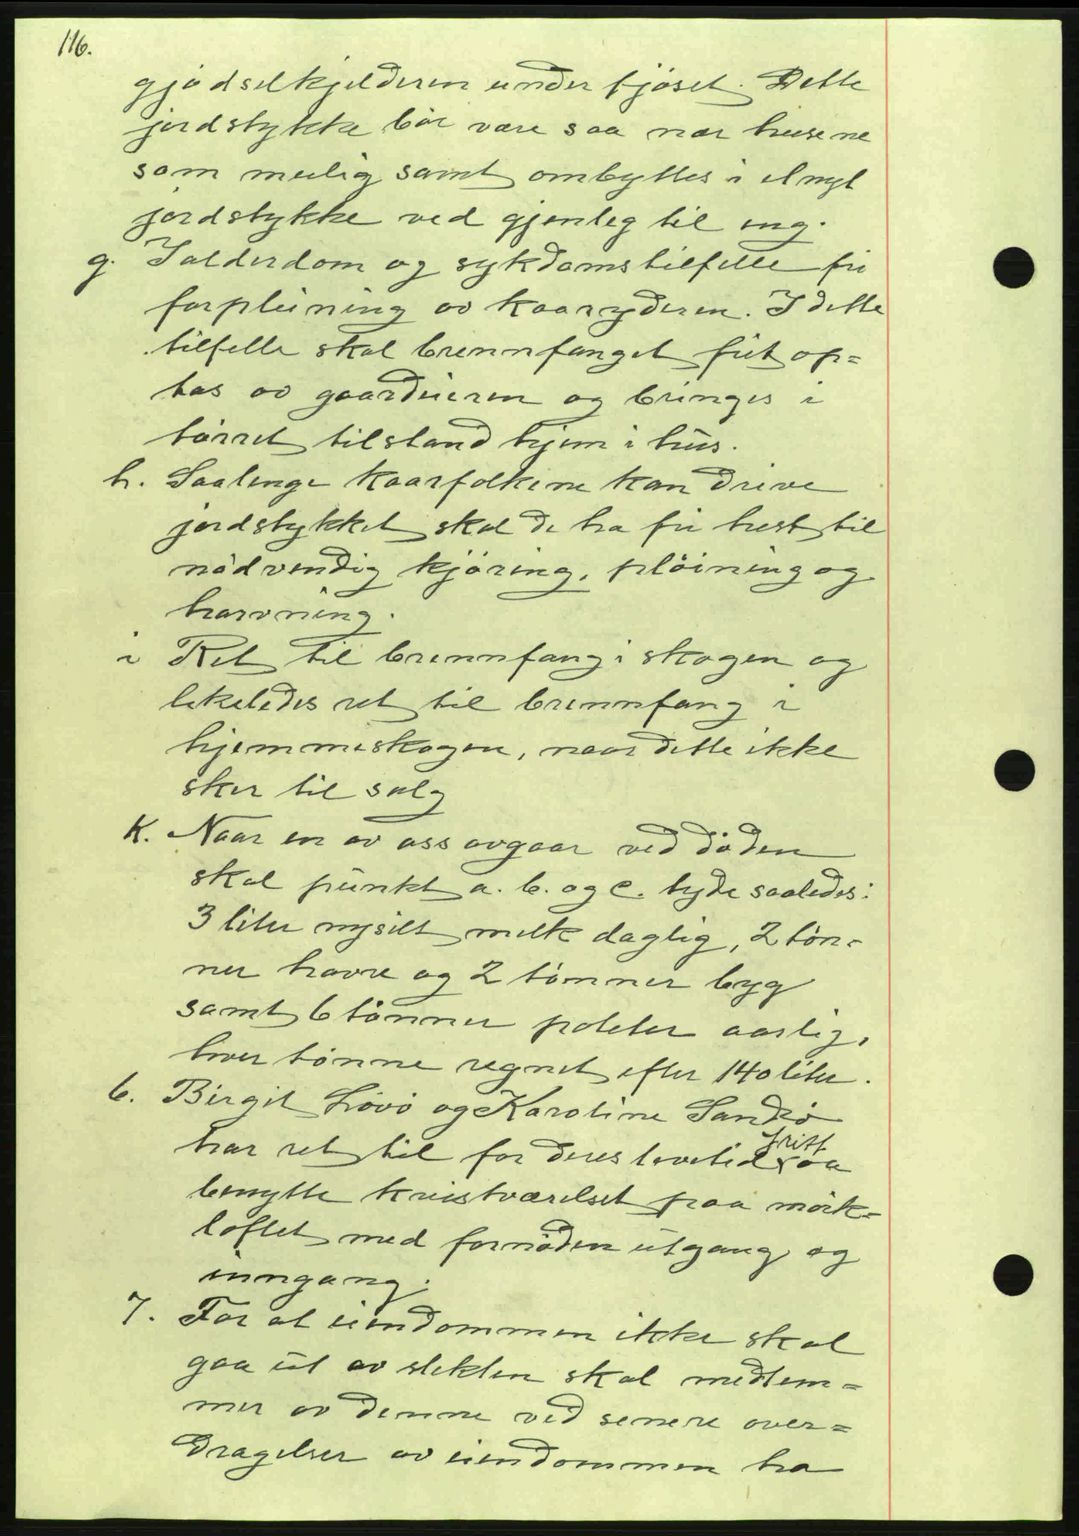 116.
gjødselkjelderen under fjøset. Dette
jordstykke bør være saa nær husene
som mulig samt ombyttes i et nyt
jordstykke ved gjenleg til eng.
g. I alderdom og sykdomstilfelle fri
forpleining av kaaryderen. I dette
tilfelle skal brennfanget frit op=
tas av gaardeieren og bringes i
tørret tilstand hjem i hus.
h. Saalenge kaarfolkene kan drive
jordstykket skal de ha fri hest til
nødvendig kjøring, pløining og
harvning.
i Ret til brennfang i skogen og
likeledes ret til brennfang i
hjemmeskogen, naar dette ikke
sker til salg
K. Naar en av oss avgaar ved døden
skal punkt a. b. og c. lyde saaledes:
3 liter nysilt melk daglig, 2 tøn=
ner havre og 2 tønner byg
samt 6 tønner poteter aarlig,
hver tønne regnet efter 140 liter.
6. Birgit Løvø og Karoline Sandø
har ret til for deres levetid fritt aa
benytte kvistværelset paa mørk=
loftet med fornøden utgang og
inngang.
7. For at eiendommen ikke skal
gaa ut av slekten skal medlem=
mer av denne ved senere over=
dragelser av eiendommen ha